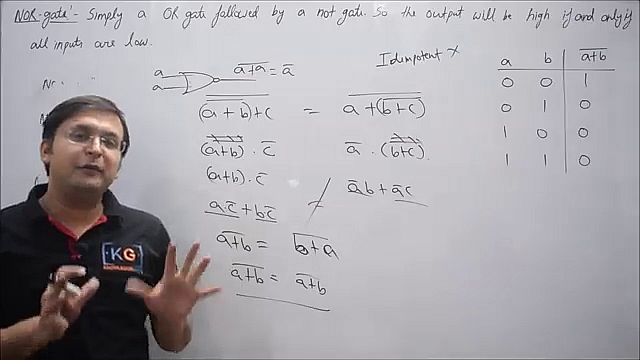 NOR-gate:- Simply a OR gate followed by a not gate. So the output will be high if and only if
all inputs are low.
Idempotent ×
a
a
\overline{a+a} = \overline{a}
\overline{\overline{(a+b)}+c} = \overline{a+\overline{(b+c)}}
(a+b) · \overline{c}    \overline{a} · (b+c)
(a+b) · \overline{c}
a·\overline{c} + b\overline{c} ≠ \overline{a}b + \overline{a}c
\overline{a+b} = \overline{b+a}
\overline{a+b} = \overline{a+b}
a b \overline{a+b}
0 0 1
0 1 0
1 0 0
1 1 0
KG